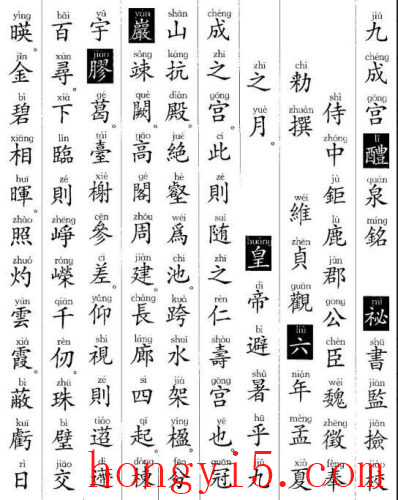 jiǔ chéng gōng lǐ quán míng mì shū jiān jiǎn
九成宫醴泉銘祕書監撿挍
shì zhōng jù lù jùn gōng chén wèi zhēng fèng
侍中鉅鹿郡公臣魏徵奉
chì zhuàn wéi zhēn guān liù nián mèng xià
勑撰維貞觀六年孟夏
zhī yuè huáng dì bì shǔ hū jiǔ
之月。皇帝避暑乎九
chéng zhī gōng cǐ zé suí zhī rén shòu gōng yě guān
成之宫。此則随之仁壽宫也。冠
shān kàng diàn jué hè wéi chí kuà shuǐ jià yíng fēn
山抗殿。絶壑爲池。跨水架楹。分
yán sǒng què gāo gé zhōu jiàn cháng láng sì qǐ dòng
巖竦闕。高閣周建。長廊四起。棟
yǔ jiāo gé tái xiè cēn cī yǎng shì zé
宇膠葛。臺榭參差。仰視則迢遰
bǎi xún xià lín zé zhēng róng qiān rèn zhū bì jiāo
百尋。下臨則崢嶸千仞。珠璧交
yìng jīn bì xiāng huī zhào zhuó yún xiá bì kuī rì
暎。金碧相暉。照灼雲霞。蔽虧日
hongyi5.com